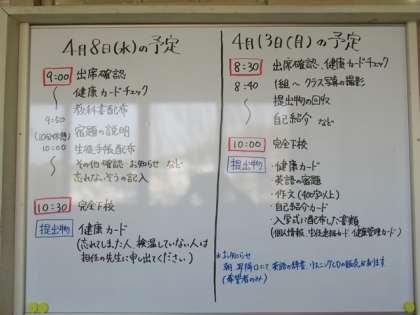 4月8日(水)の予定
9:00 出席確認
健康カードチェック
教科書配布
9:50 宿題の説明
(10分休憩)
10:00 生徒手帳配布
その他確認・お知らせ など
忘れないぞうの記入
10:30 完全下校
提出物 健康カード
(忘れてしまった人、検温していない人は
担任の先生に申し出てください)
4月13日(月)の予定
8:30 出席確認、健康カードチェック
8:40 1組〜 クラス写真の撮影
提出物の回収
自己紹介 など
10:00 完全下校
提出物 ・健康カード
・英語の宿題
・作文(400字以上)
・自己紹介カード
・入学式に配布した書類
(個人情報、生徒連絡カード、健康管理カード)
*お知らせ
朝 昇降口にて 英語の辞書、リスニングCDの販売があります
(希望者のみ)